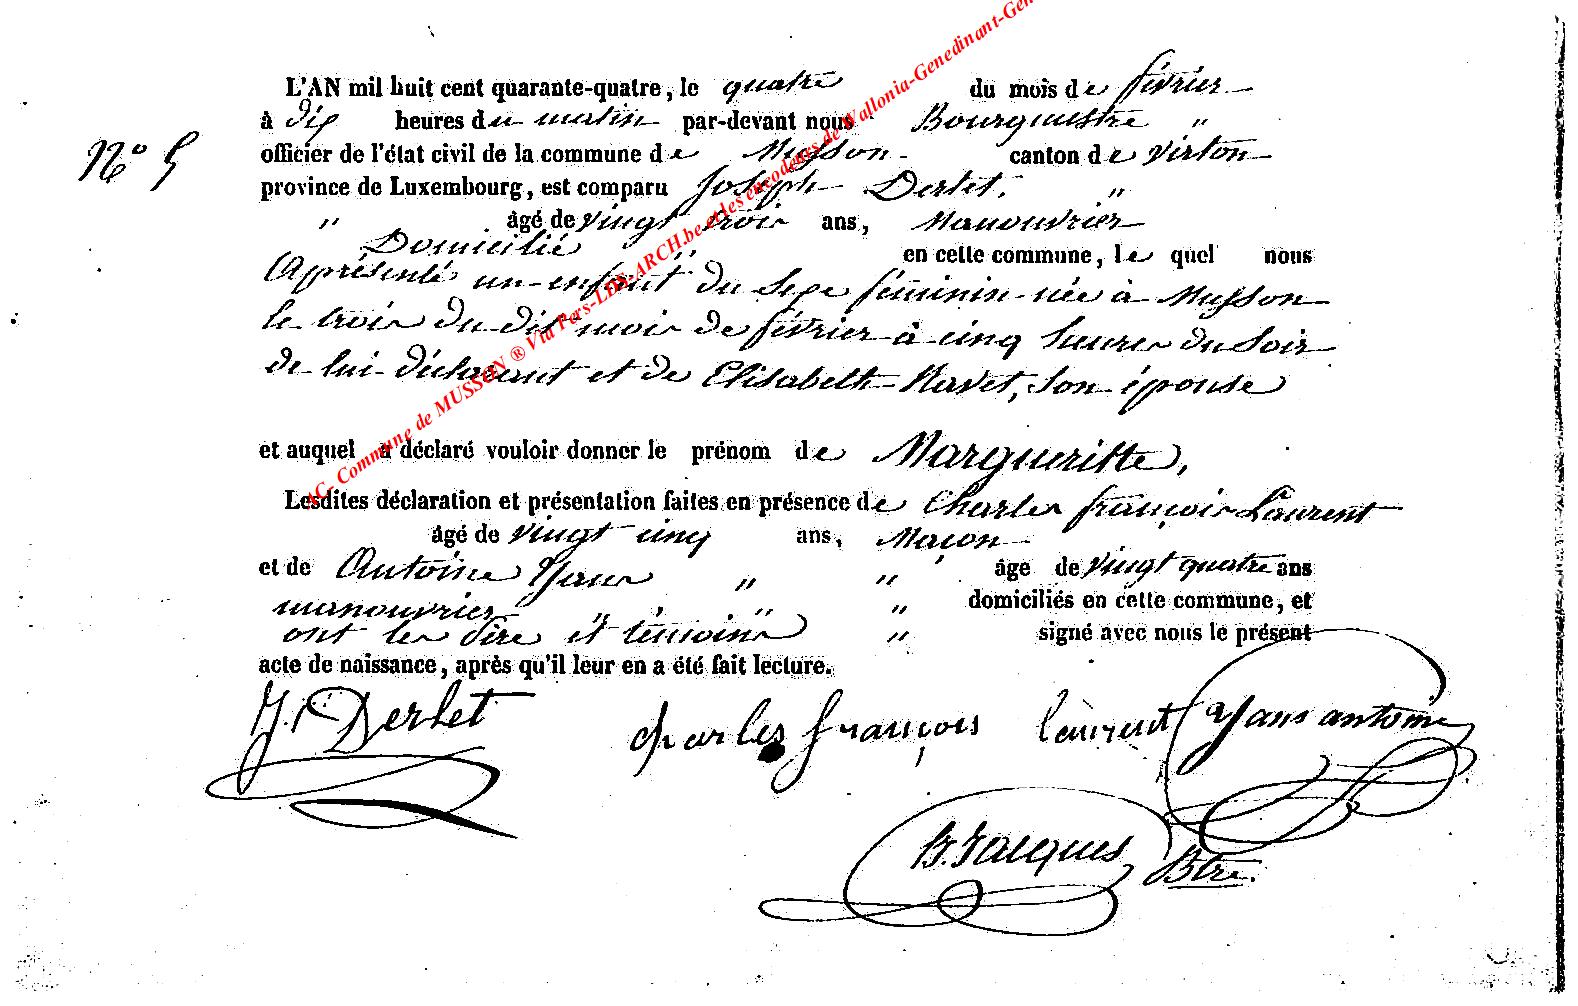 L'AN mil huit cent quarante-quatre, le quatre du mois de février
à dix heures du matin par-devant nous Bourguestre "
N° 5
officier de l'état civil de la commune de Musson canton de virton
province de Luxembourg, est comparu Joseph Derlet. "
" âgé de vingt trois ans, Manouvrier
Domicilié " en cette commune, le quel nous
Aprésenté un enfant du Sexe féminin née à Musson
le trois du dit mois de février à cinq heures du Soir
de lui déclarant et de Elisabeth Navet, Son épouse
et auquel a déclaré vouloir donner le prénom de Margueritte,
Lesdites déclaration et présentation faites en présence de Charles françois Laurent
âgé de vingt cinq ans, Maçon
et de Antoine Yans " " âgé de vingt quatre ans
manouvrier " " " domiciliés en cette commune, et
ont les dire et témoins " signé avec nous le présent
acte de naissance, après qu'il leur en a été fait lecture.
J. Derlet charles françois laurent Yans antoine
B. Jacques Btre.
AC- Commune de MUSSON ® Via Pers-LDS-ARCH.be et les encodeurs de Wallonia-Genedinant-Gen